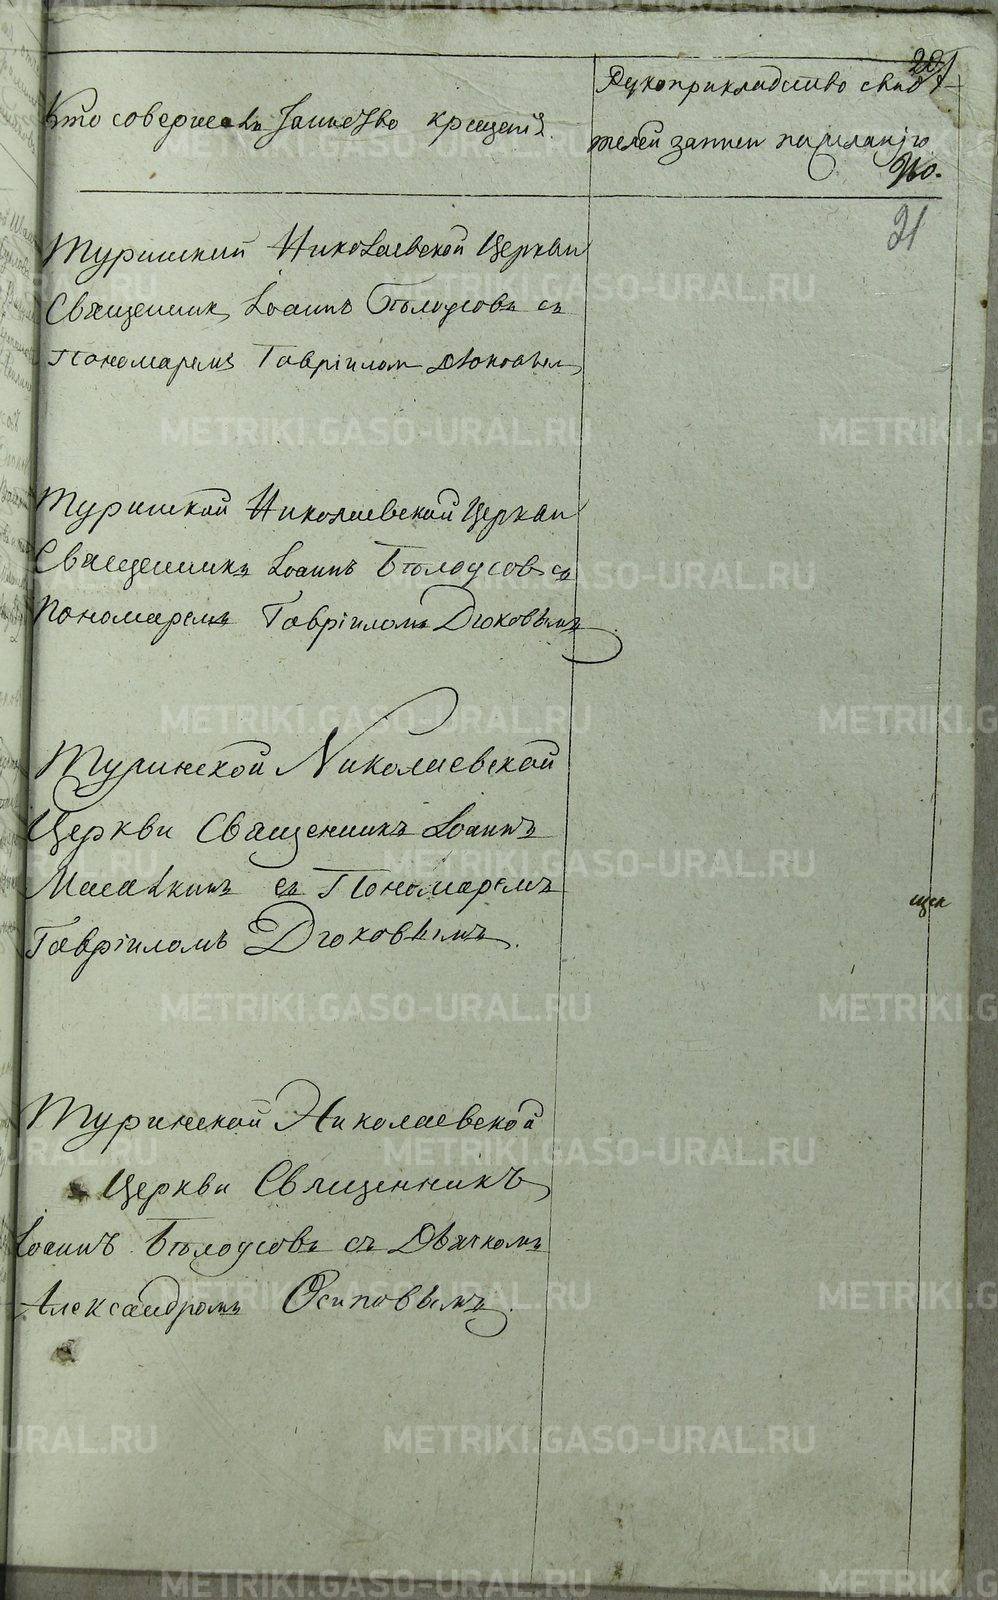 221
Рукоприкладство свидѣ-
Кто совершалъ таинство крещенія.
телей записи по желанію
21
Туринской Николаевской Церкви
Священникъ Іоаннъ Бѣлоусовъ съ
Пономаремъ Гавріиломъ Дьюковым
Туринской Николаевской Церкви
Священникъ Іоаннъ Бѣлоусовъ съ
Пономаремъ Гавріиломъ Дюковымъ
Туринской Николаевской
Церкви Священникъ Іоаннъ
съ Пономаремъ
Гавріиломъ Дюковымъ.
Туринской Николаевской
Церкви Священникъ
Іоаннъ Бѣлоусовъ съ Дьячкомъ
Александромъ Осиповымъ.
METRIKI.GASO-URAL.RU